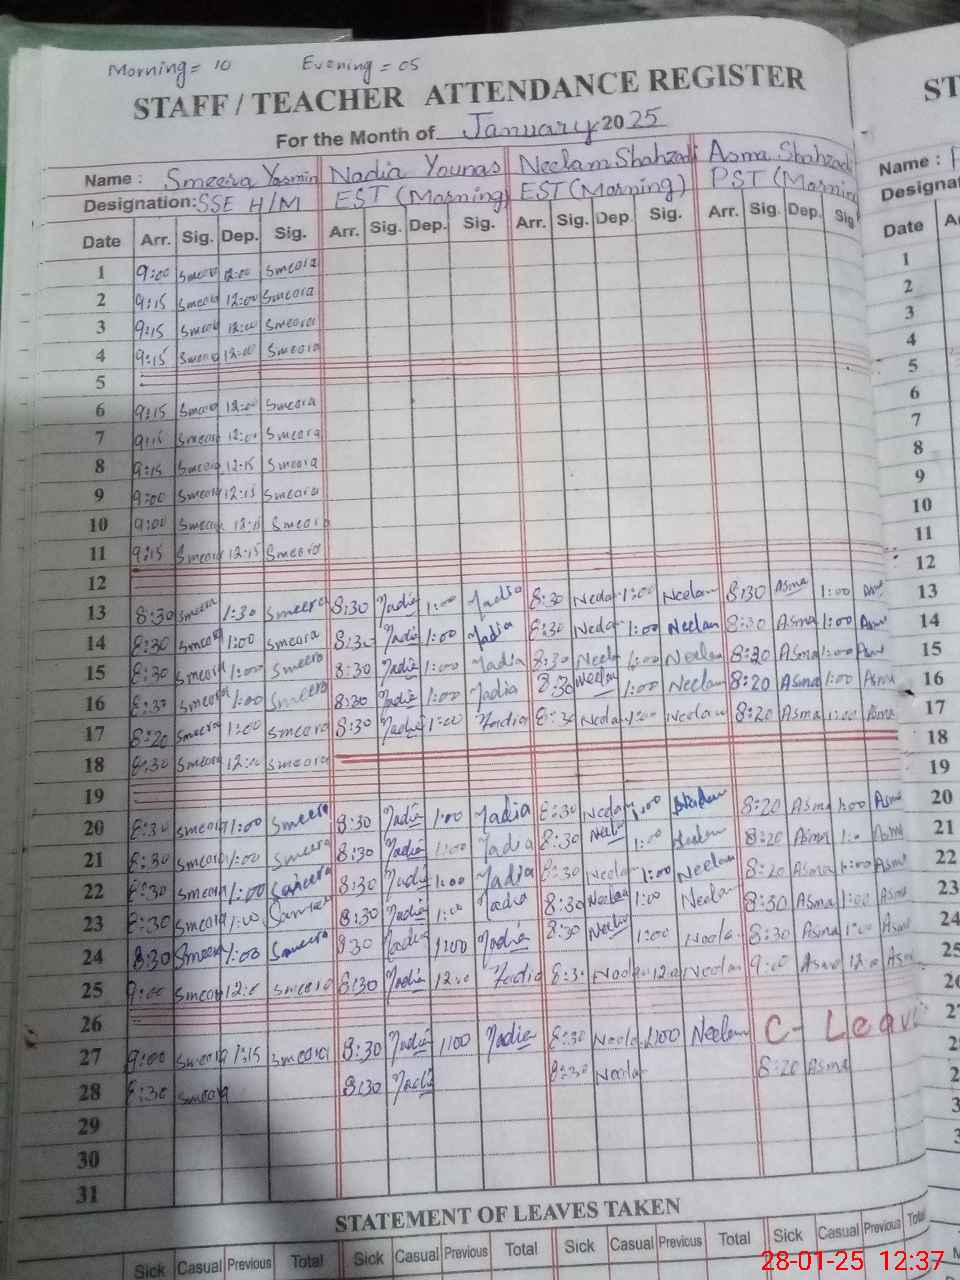 Morning = 10 Evening = 05
STAFF / TEACHER ATTENDANCE REGISTER
For the Month of January 2025
Name : Smeera Yasmin Nadia Younas Neelam Shahzadi Asma Shahzadi
Designation: SSE H/M EST (Morning) EST (Morning) PST (Morning
Date Arr. Sig. Dep. Sig. Arr. Sig. Dep. Sig. Arr. Sig. Dep. Sig. Arr. Sig. Dep. Sig
1 9:00 Smeera 12:00 Smeera
2 9:15 Smeera 12:00 Smeera
3 9:15 Smeera 12:00 Smeera
4 9:15 Smeera 12:00 Smeera
5
6 9:15 Smeera 12:00 Smeera
7 9:15 Smeera 12:00 Smeera
8 9:15 Smeera 12:15 Smeera
9 9:00 Smeera 12:15 Smeera
10 9:00 Smeera 12:15 Smeera
11 9:15 Smeera 12:15 Smeera
12
13 8:30 Smeera 1:30 Smeera 8:30 Nadia 1:00 Nadia 8:30 Neelam 1:00 Neelam 8:30 Asma 1:00 Asma
14 8:30 Smeera 1:00 Smeera 8:30 Nadia 1:00 Nadia 8:30 Neelam 1:00 Neelam 8:30 Asma 1:00 Asma
15 8:30 Smeera 1:00 Smeera 8:30 Nadia 1:00 Nadia 8:30 Neelam 1:00 Neelam 8:20 Asma 1:00 Asma
16 8:30 Smeera 1:00 Smeera 8:30 Nadia 1:00 Nadia 8:30 Neelam 1:00 Neelam 8:20 Asma 1:00 Asma
17 8:20 Smeera 1:00 Smeera 8:30 Nadia 1:00 Nadia 8:30 Neelam 1:00 Neelam 8:20 Asma 1:00 Asma
18 8:30 Smeera 12:00 Smeera
19
20 8:30 Smeera 1:00 Smeera 8:30 Nadia 1:00 Nadia 8:30 Neelam 1:00 Neelam 8:20 Asma 1:00 Asma
21 8:30 Smeera 1:00 Smeera 8:30 Nadia 1:00 Nadia 8:30 Neelam 1:00 Neelam 8:20 Asma 1:0 Asma
22 8:30 Smeera 1:00 Sameera 8:30 Nadia 1:00 Nadia 8:30 Neelam 1:00 Neelam 8:20 Asma 1:00 Asma
23 8:30 Smeera 1:00 Sameera 8:30 Nadia 1:00 Nadia 8:30 Neelam 1:00 Neelam 8:30 Asma 1:00 Asma
24 8:30 Smeera 1:00 Sameera 8:30 Nadia 1:00 Nadia 8:30 Neelam 1:00 Neela 8:30 Asma 1:00 Asma
25 9:00 Smeera 12:0 Smeera 8:30 Nadia 12:0 Nadia 8:30 Neelam 12:0 Neelam 9:00 Asma 12:0 Asm
26
27 9:00 Smeera 1:15 Smeera 8:30 Nadia 1:00 Nadia 8:30 Neela 1:00 Neelam C- Leave
28 8:30 Smeera 8:30 Nadia 8:30 Neelam 8:20 Asma
29
30
31
STATEMENT OF LEAVES TAKEN
Sick Casual Previous Total Sick Casual Previous Total Sick Casual Previous Total Sick Casual Previous Total
ST
Name :
Designat
Date
1
2
3
4
5
6
7
8
9
10
11
12
13
14
15
16
17
18
19
20
21
22
23
24
25
28-01-25 12:37